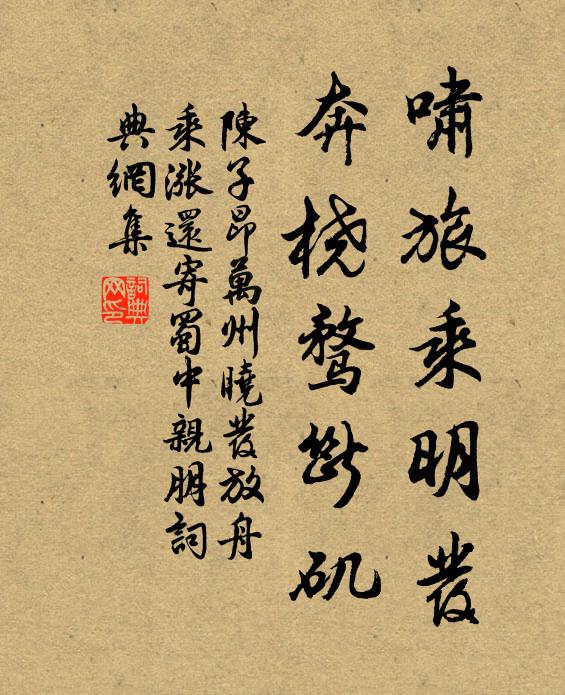 嘯旅乘明發
奔橈騖斷矶
陳子昂萬州曉發放舟
乘漲還寄蜀中親朋詞
典網集
詞典
网印